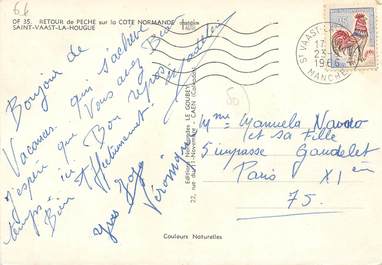 6.6
OF 35. RETOUR de PECHE sur la COTE NORMANDE
SAINT-VAAST-LA-HOUGUE
Bonjour de
Vacances. qui s'achève
J'espère que Vous avez Beau
temps. ici Bon repos.
Bien Affectueusement.
Yves
Véronique
Editions Normandes LE GOUBEY
22, rue du 11-Novembre - CAEN (Calvados)
50
ST VAAST
17
1966
MANCHE
Mme Manuela
et sa Fille
5 impasse Gaudelet
Paris XIe
75.
Couleurs Naturelles